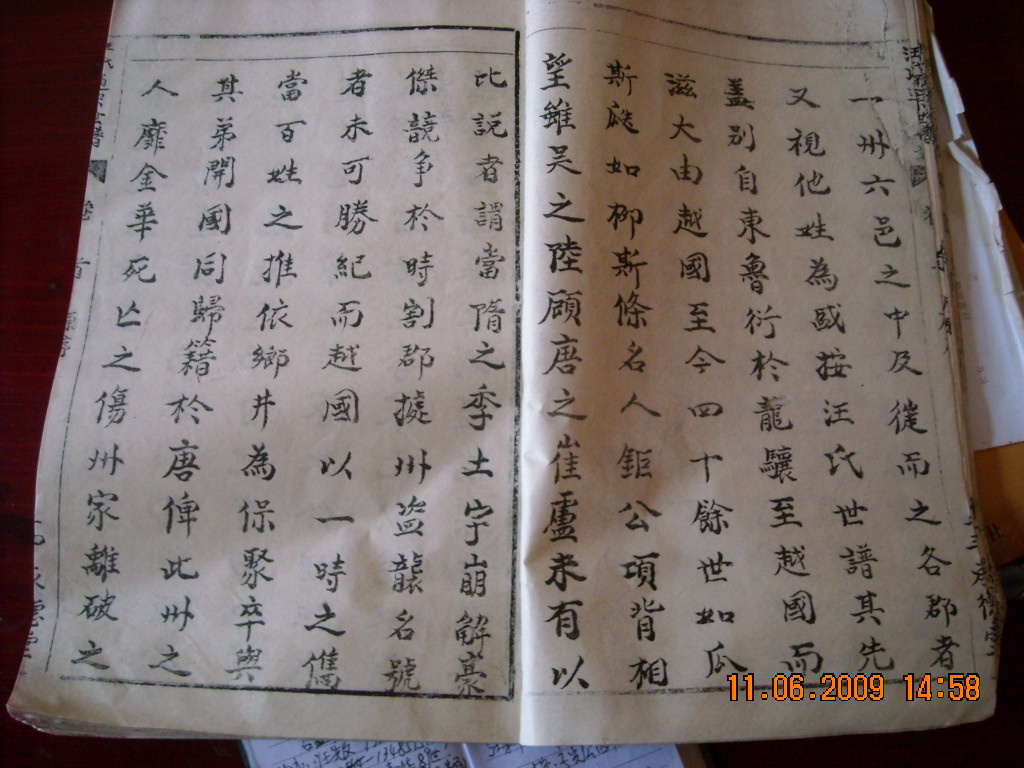 一州六邑之中及徙而之各郡者
又視他姓為盛按汪氏世譜其先
蓋別自東魯衍於龍驤至越國而
滋大由越國至今四十餘世如瓜
斯瓞如柳斯條名人鉅公項背相
望雖吴之陸顧唐之崔盧未有以
比説者謂當隋之季土宇崩解豪
傑競争於時割郡據州盗竊名號
者未可勝紀而越國以一時之儁
當百姓之推依鄉井為保聚卒與
其弟開國同歸籍於唐俾此州之
人靡金華死亡之傷州家離破之
卷首
11.06.2009 14:58